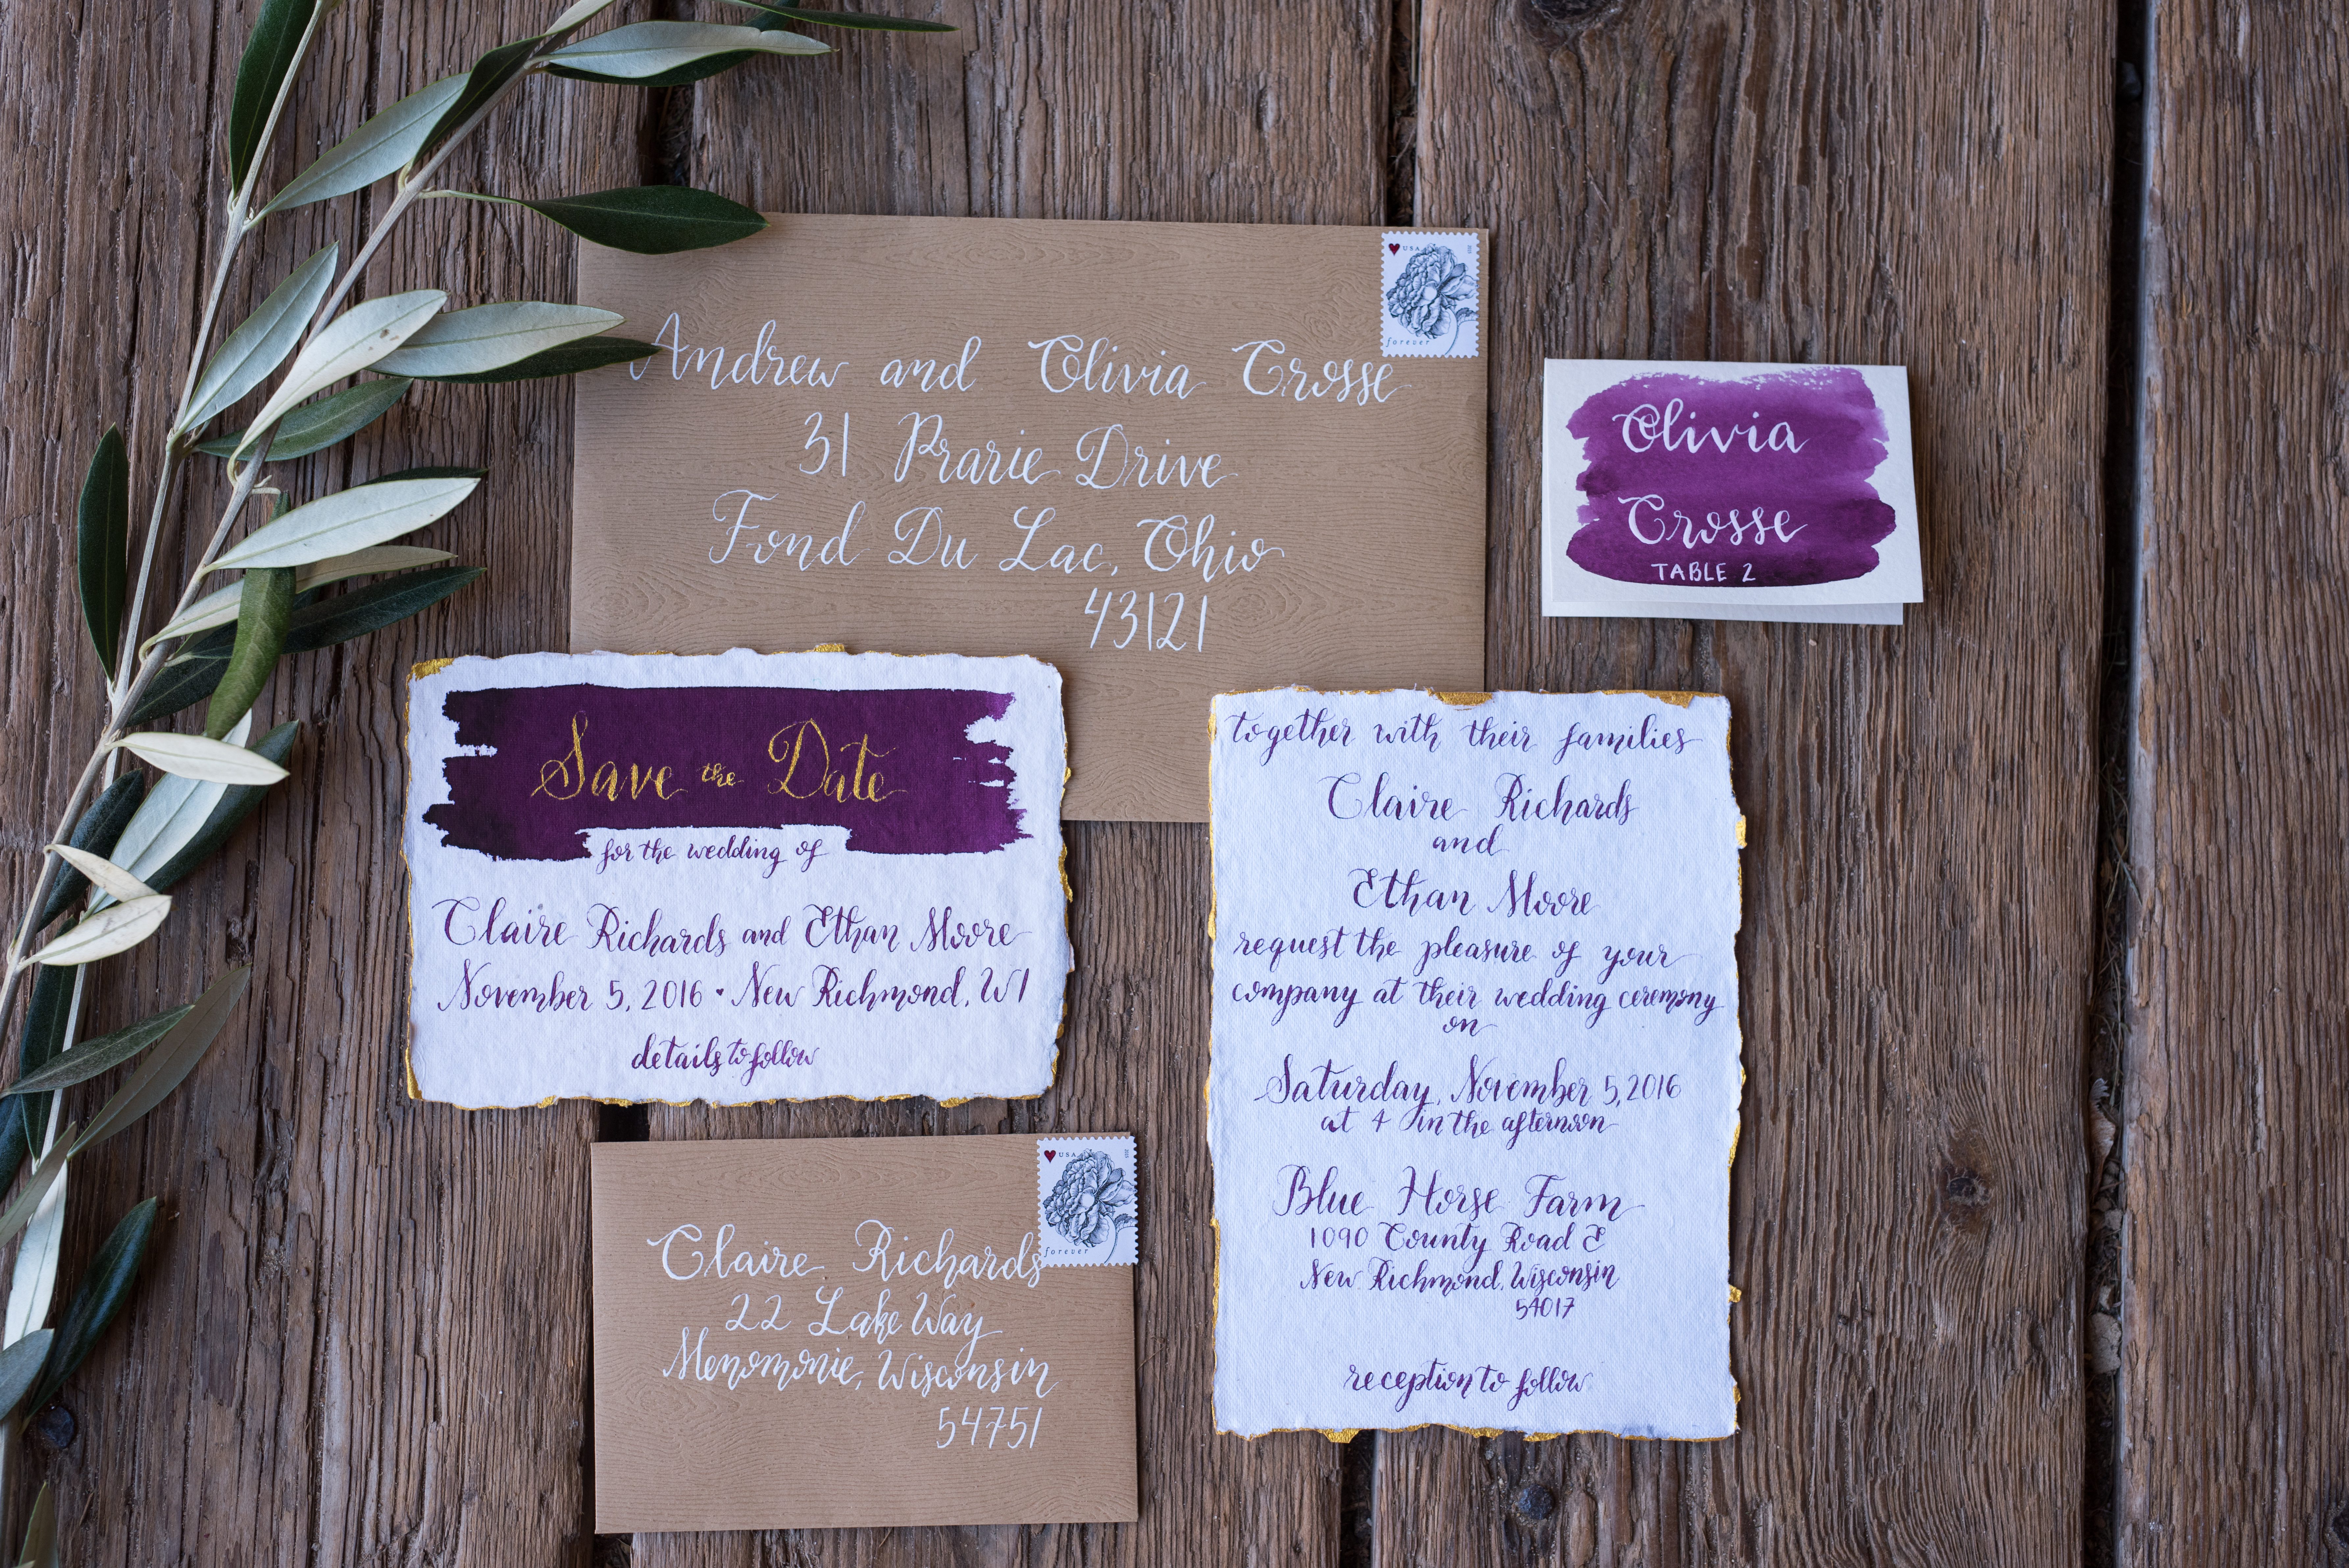 USA
forever
Andrew and Olivia Crosse
31 Prarie Drive
Fond Du Lac, Ohio
43121
Olivia
Crosse
TABLE 2
Save the Date
for the wedding of
Claire Richards and Ethan Moore
November 5, 2016 • New Richmond, WI
details to follow
together with their families
Claire Richards
and
Ethan Moore
request the pleasure of your
company at their wedding ceremony
on
Saturday, November 5, 2016
at 4 in the afternoon
Blue Horse Farm
1090 County Road E
New Richmond, Wisconsin
54017
reception to follow
USA
forever
Claire Richards
22 Lake Way
Menomonie, Wisconsin
54751